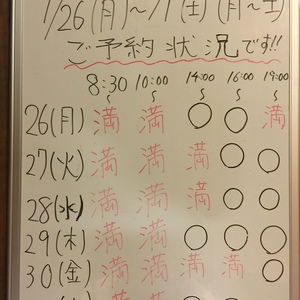 /26(月)〜 /1(土)(月〜土)
ご予約状況です!!
8:30〜 10:00〜 14:00〜 16:00〜 19:00〜
26(月) 満 満 ○ ○ 満
27(火) 満 満 満 ○ ○
28(水) 満 満 満 ○ ○
29(木) 満 満 ○ ○ ○
30(金) 満 満 満 満 ○
満 満 ○ ○ ○